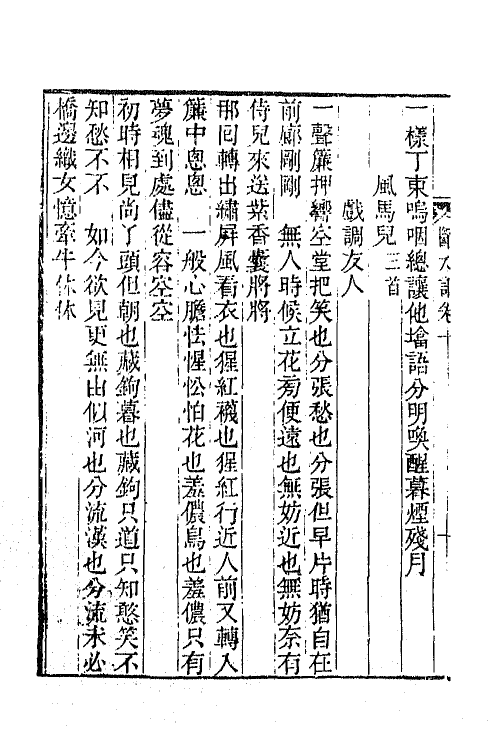 一樣丁東嗚咽總讓他墖語分明喚醒暮煙殘月
風馬兒三首
戲調友人
一聲簾押響空堂把笑也分張愁也分張但早片時猶自在
前廊剛剛　無人時候立花旁便遠也無妨近也無妨奈有
侍兒來送紫香囊將將
那回轉出繡屏風看衣也猩紅襪也猩紅行近人前又轉入
簾中悤悤　一般心膽怯惺忪怕花也羞儂鳥也羞儂只有
夢魂到處儘從容空空
初時相見尚丫頭但朝也藏鉤暮也藏鉤只道只知憨笑不
知愁不不　如今欲見更無由似河也分流漢也分流未必
橋邊織女憶牽牛休休